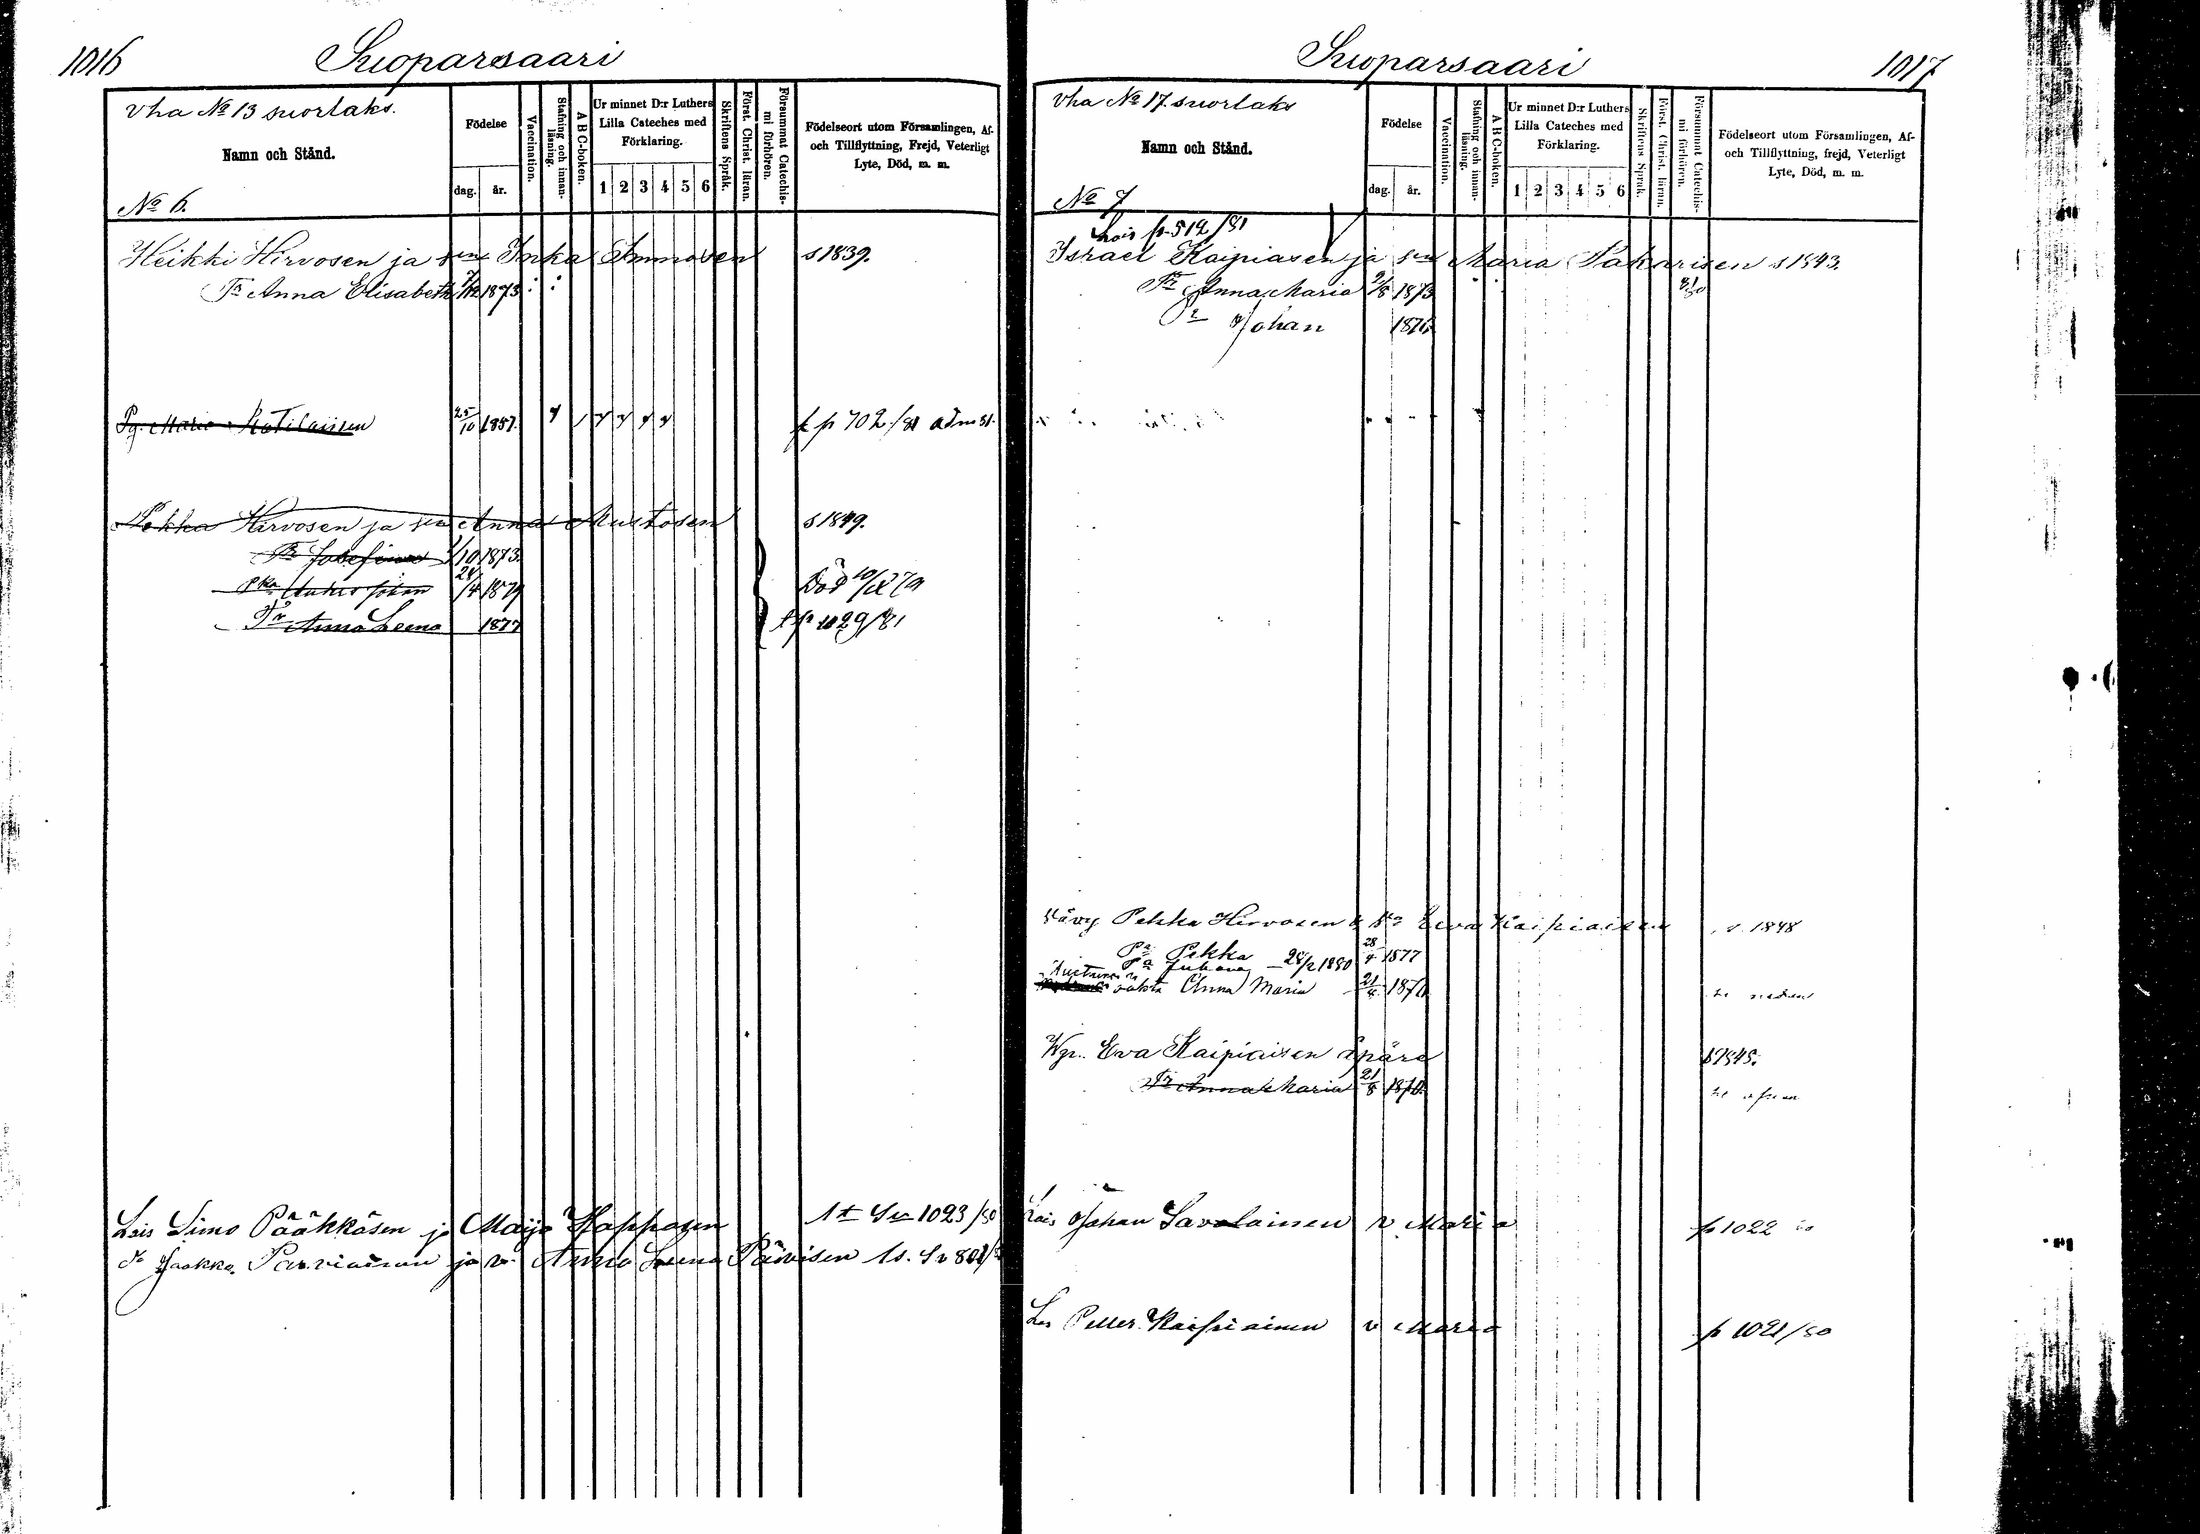 1016 Suoparsaari
vha № 13 suorlaks.
Namn och Stånd.
№ 6.
Födelse
dag. år.
Vaccination.
Stafning och innan-läsning.
ABC-boken.
Ur minnet D:r Luthers
Lilla Cateches med
Förklaring.
1 2 3 4 5 6
Skriftens Språk.
Först. Christ. läran.
Försummat Catechis-mi förhören.
Födelseort utom Församlingen, Af-
och Tillflyttning, Frejd, Veterligt
Lyte, Död, m. m.
Heikki Hirvosen ja sen Inka Immosen s 1839.
Tr Anna Elisabeth 1873
Pg. Maria Kotilaisen 25/10 1857. f p 702/81 adm 81.
Pekka Hirvosen ja sen Anna Mustosen s 1849.
Tr Josefina 10 1873.
Pka Anders Johan 24/4 1879 Död 10/IX 79
Tr Anna Leena 1877 f p 1029/81
Lois Simo Pääkkösen ja Maija Happosen 1023/80
Do Jaakko Parviaisen ja v. Anna Leena Päivisen
Suoparsaari 1017
vha № 17. suorlaks
Namn och Stånd.
№ 7
Födelse
dag. år.
Vaccination.
Stafning och innan-läsning.
ABC-boken.
Ur minnet D:r Luthers
Lilla Cateches med
Förklaring.
1 2 3 4 5 6
Skriftens Språk.
Först. Christ. läran.
Försummat Catechis-mi förhören.
Födelseort utom Församlingen, Af-
och Tillflyttning, frejd, Veterligt
Lyte, Död, m. m.
Lois p 512/81
Israel Kaipiasen ja sen Maria Pakarisen s 1843.
Tr Anna Maria 2/8 1873
Pr Johan 1876
Vävy Pekka Hirvosen Eva Kaipiaisen s. 1848
Pa Pekka 28/4 1877
Pa Juhana 28/2 1880
Anna Maria 21/8 1870
Eva Kaipiaisen äpärä
Tr Anna Maria 21/8 1870.
Lois Johan Savolainen v Maria p 1022
Petter Kaipiainen v Maria p 1021/80